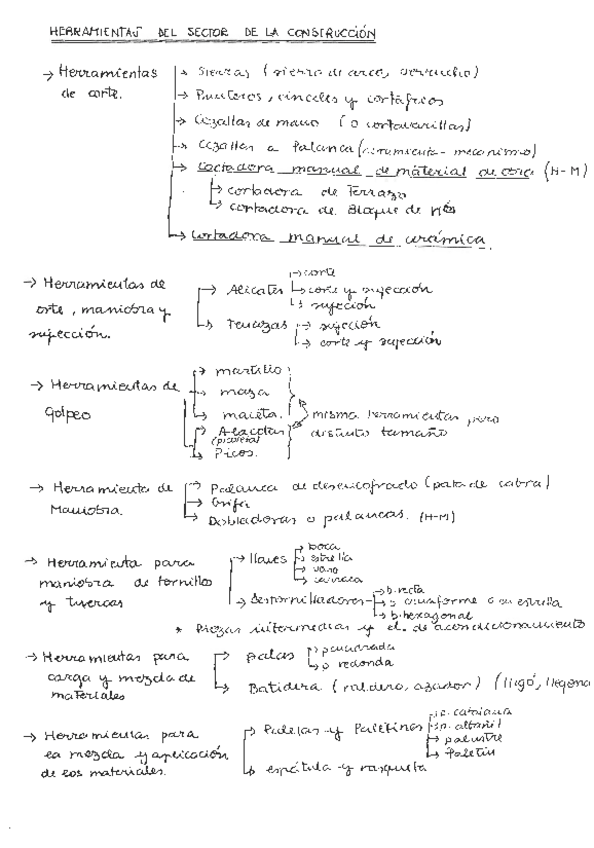 HERRAMIENTAS DEL SECTOR DE LA CONSTRUCCIÓN
→ Herramientas de corte.
→ Sierras (sierra de arco, serrucho)
→ Punteros, cinceles y cortafríos
→ Cizallas de mano (o cortavarillas)
→ Cizallas a Palanca (
→ Cortadora manual de material de obra (H-M)
→ cortadora de Terrazo
→ cortadora de Bloque de
→ Cortadora manual de cerámica.
→ Herramientas de corte, maniobra y sujección.
→ Alicates
→ corte
→ corte y sujección
→ sujección
→ Tenazas
→ sujección
→ corte y sujección
→ Herramientas de Golpeo
→ martillo
→ maza
→ maceta.
misma herramientas, pero distinto tamaño
→ Alcotas (piqueta)
→ Picos.
→ Herramienta de Maniobra.
→ Palanca de desencofrado (pata de cabra)
→ Grifa
→ Dobladoras o palancas. (H-M)
→ Herramienta para maniobra de tornillo y tuercas
→ llaves
→ boca
→ estrella
→ vaso
→ carraca
→ Destornilladores
→ b. recta
→ b cruciforme o en estrella
→ b. hexagonal
* Piezas intermedias y el. de acondicionamiento
→ Herramientas para carga y mezcla de materiales
→ palas
→ p cuadrada
→ p redonda
→ Batidera (raldero, azador) (
→ Herramientas para la mezcla y aplicación de los materiales.
→ Paletas y Paletinas
→ p. catalana
→ p. albañil
→ palustre
→ Paletín
→ espátula y rasqueta